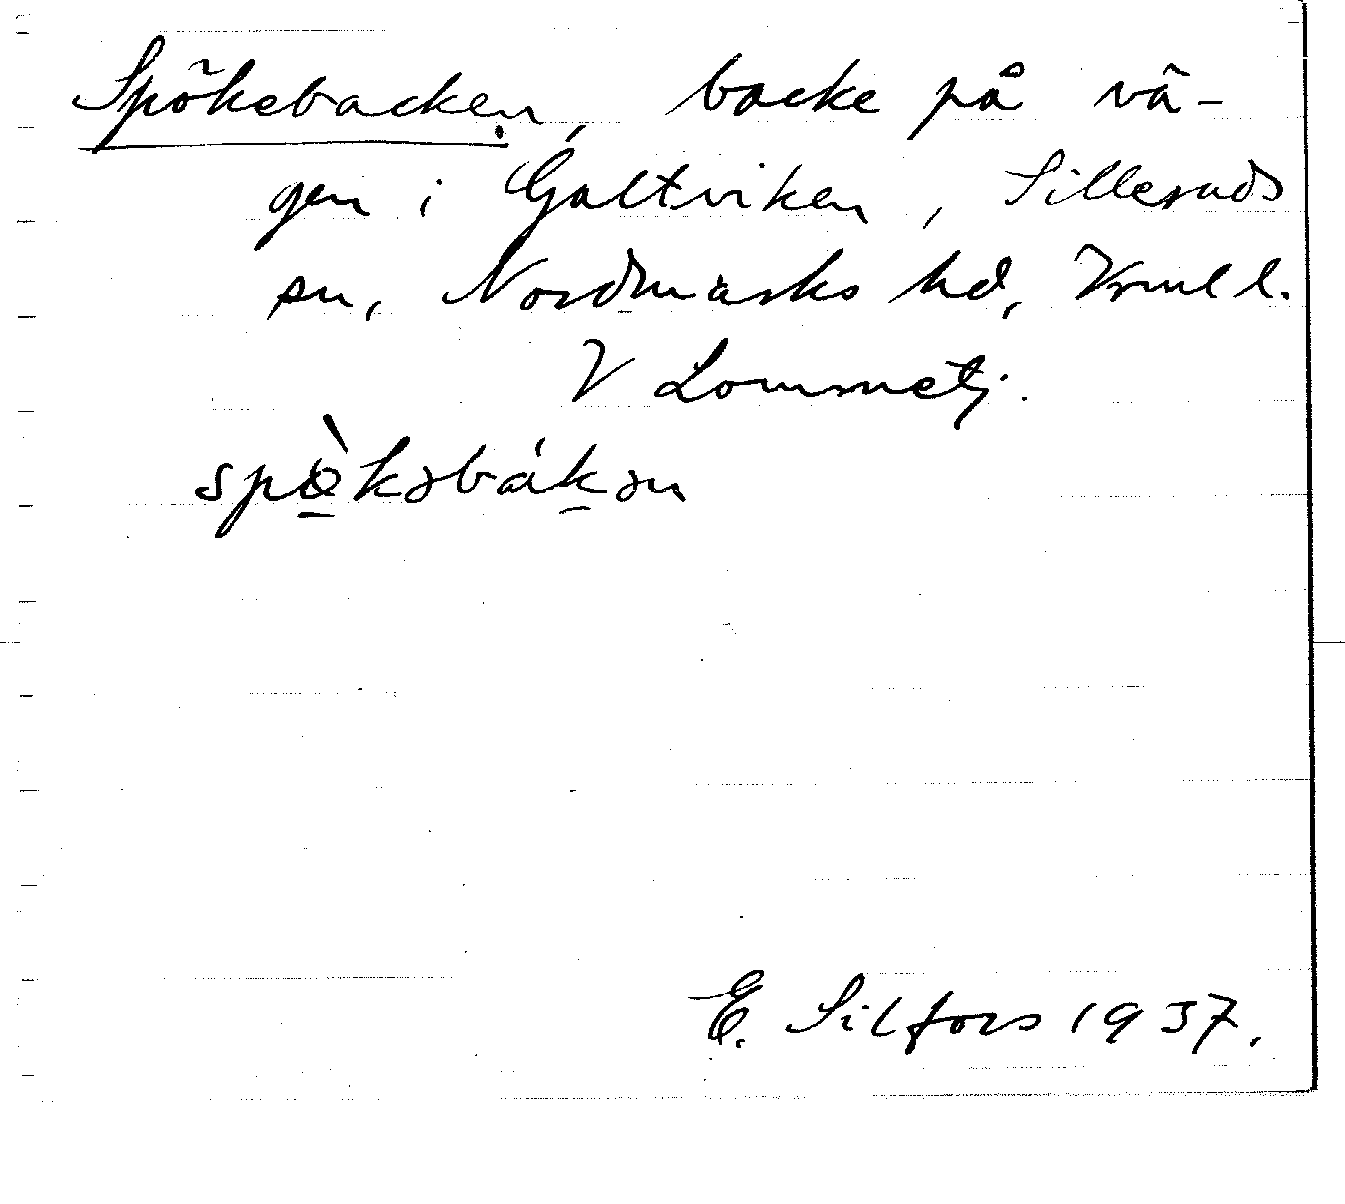 Spökebacken, backe på vä-
gen i Galtviken, Silleruds
sn, Nordmarks hd, Vrml l.
V Lommetj.
spö̀kəbákən
E. Silfors 1937.